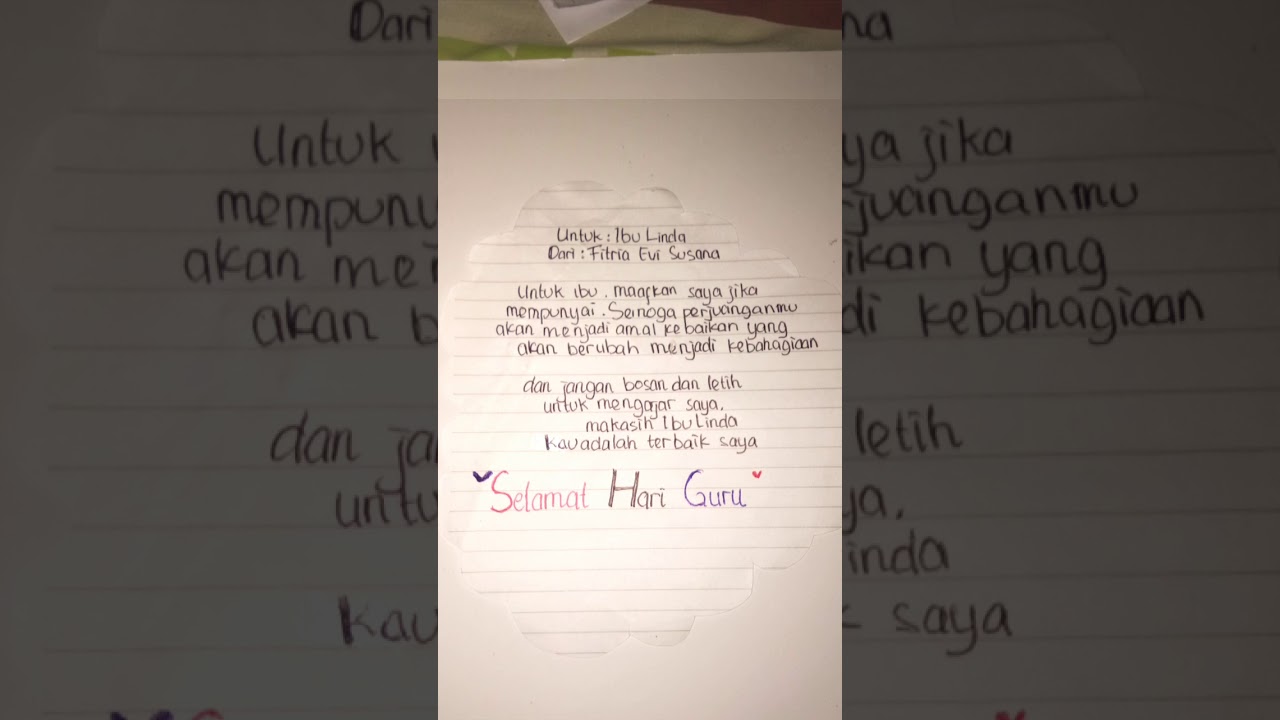 Untuk : Ibu Linda
Dari : Fitria Evi Susana
Untuk ibu . maafkan saya jika
mempunyai . Semoga perjuanganmu
akan menjadi amal kebaikan yang
akan berubah menjadi kebahagiaan
dan jangan bosan dan letih
untuk mengajar saya.
makasih Ibu Linda
kau adalah terbaik saya
"Selamat Hari Guru"